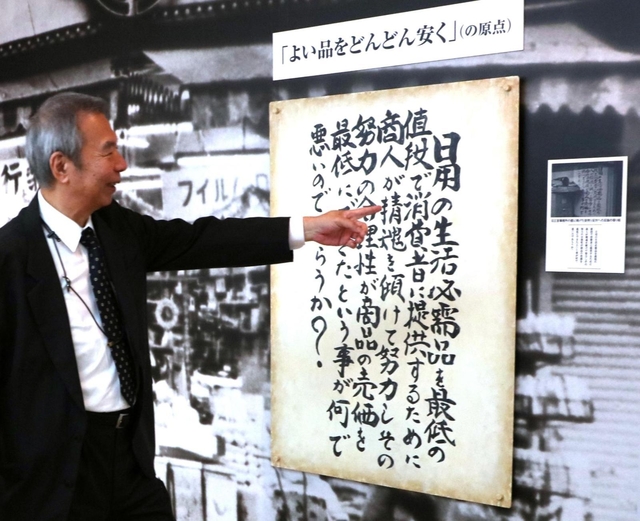 「よい品をどんどん安く」(の原点)
日用の生活必需品を最低の
値段で消費者に提供するために
商人が精魂を傾けて努力しその
努力の合理性が商品の売価を
最低に たという事が何で
悪いので らうか?
行
フイル